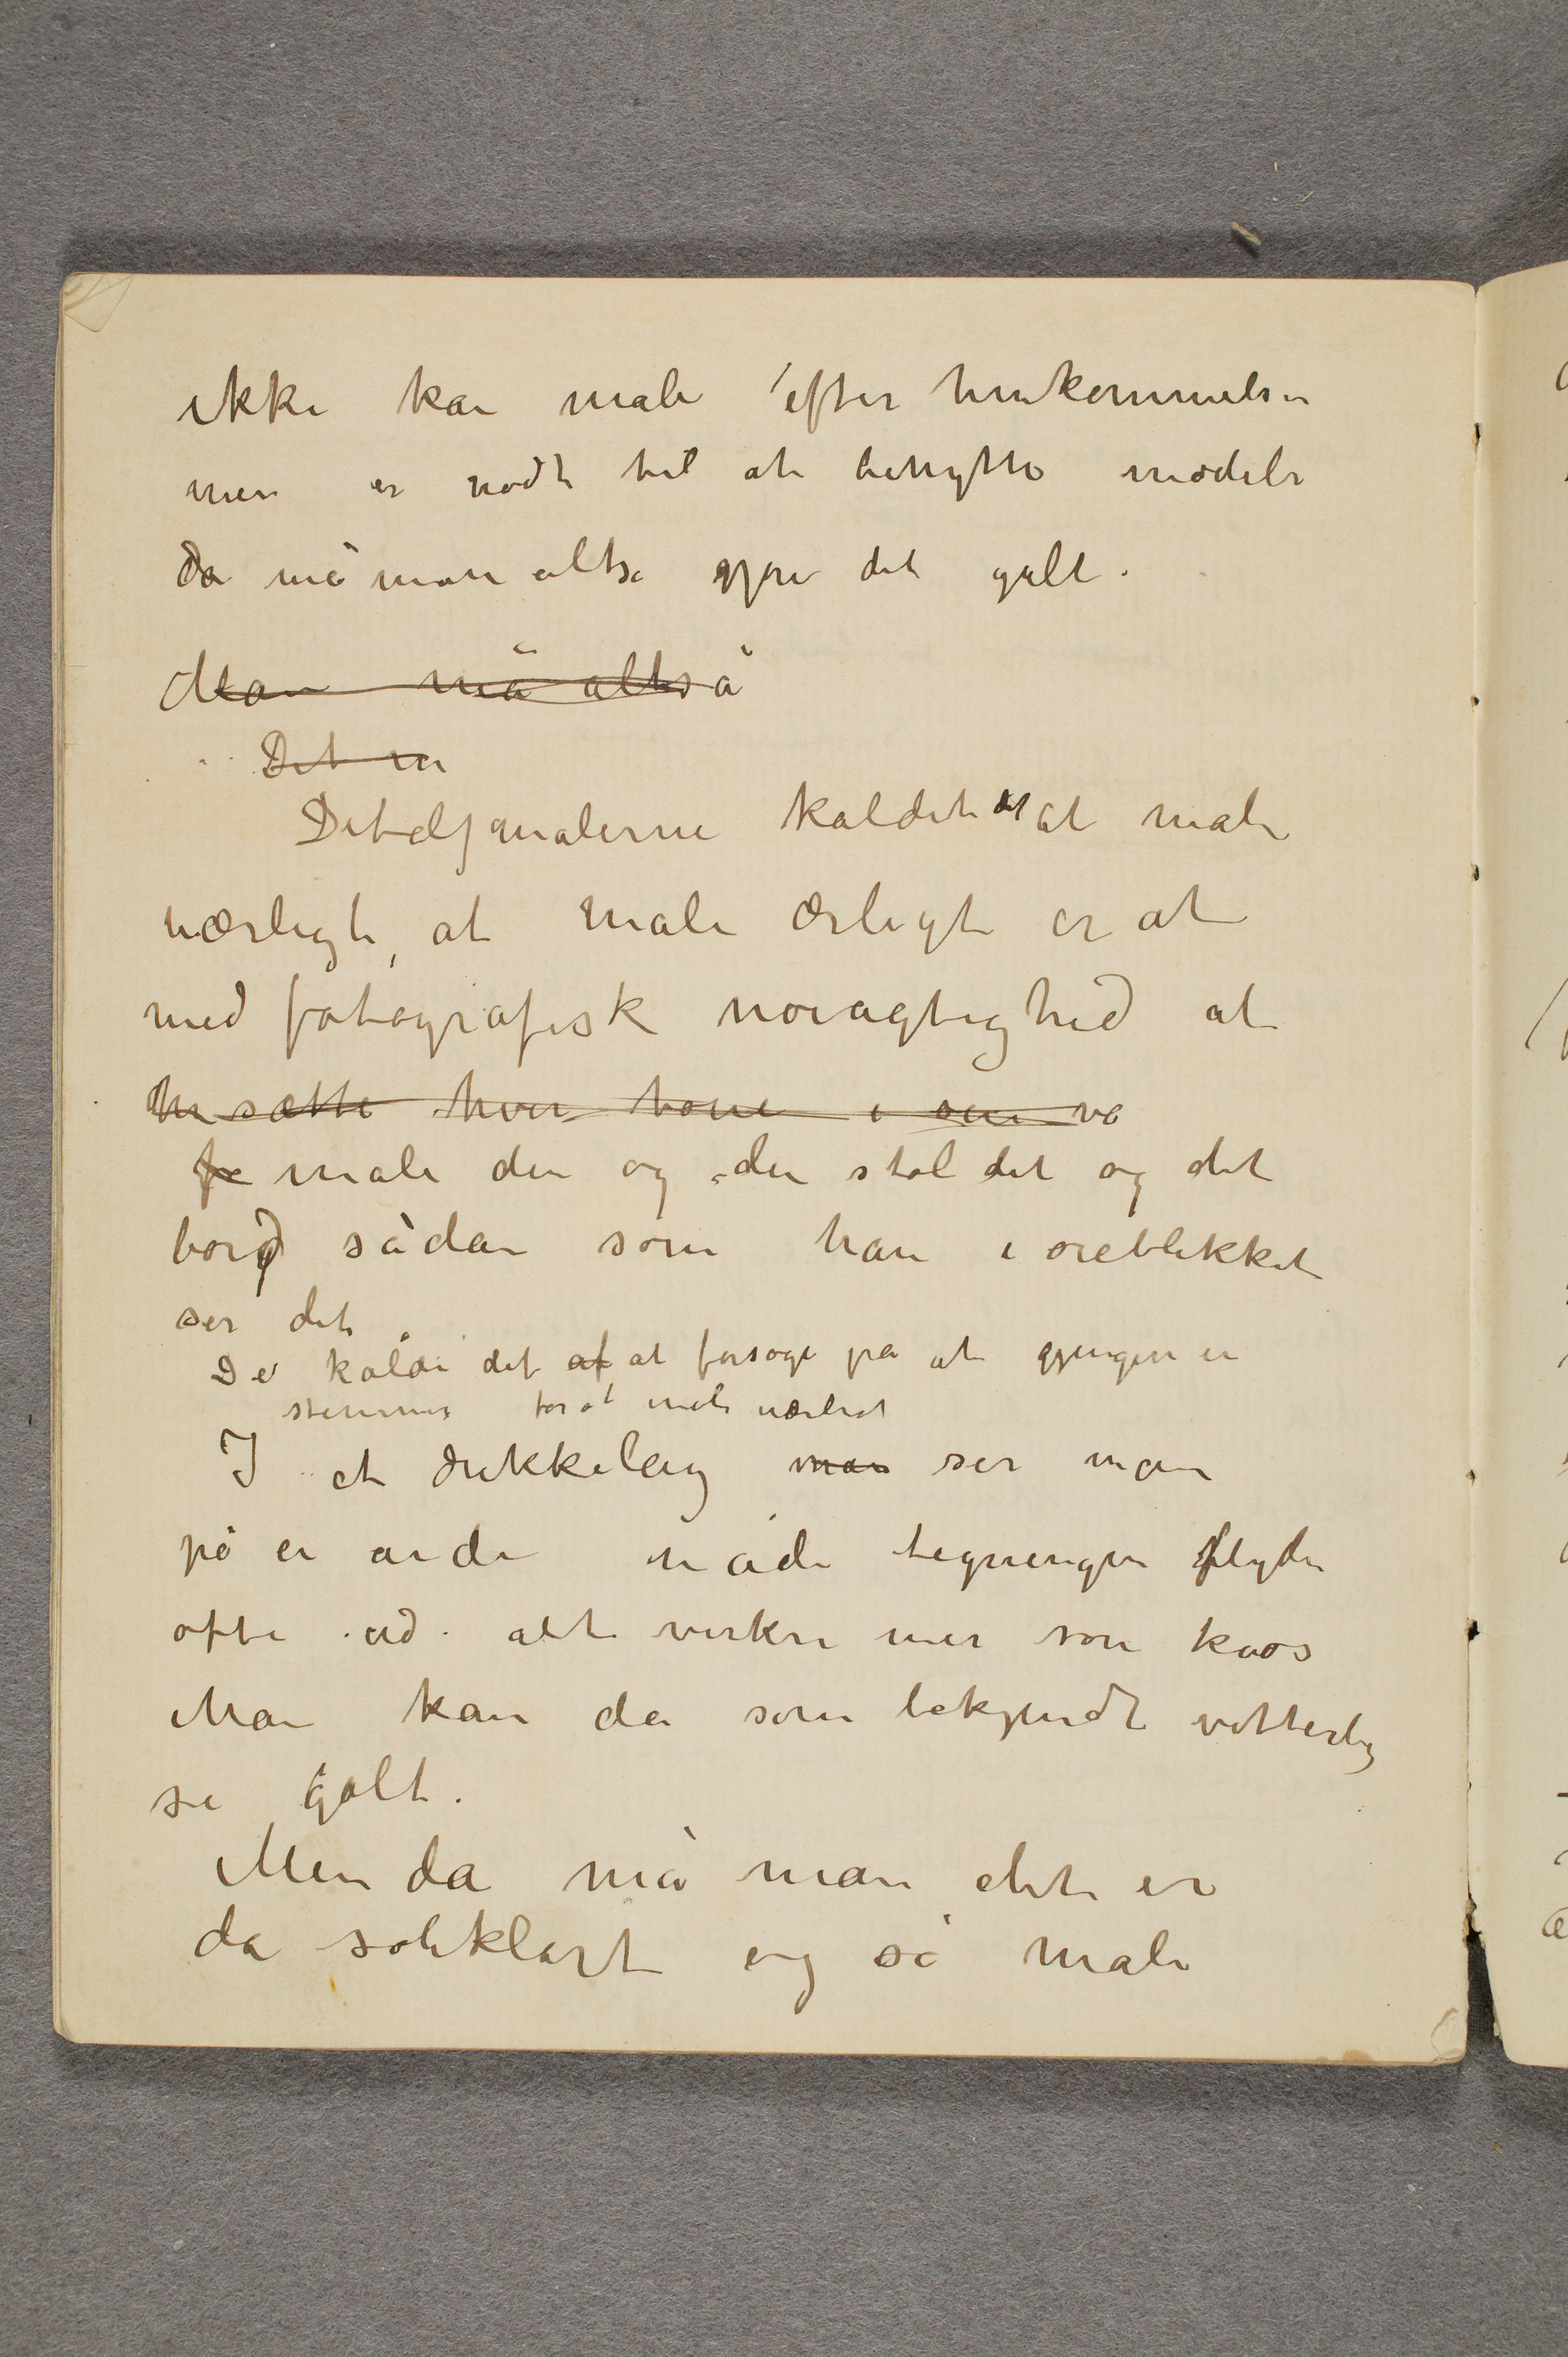 ikke kan male efter hukommelsen
men er nødt til at benytte modeler
da må man altså gjøre det galt.
Man må altså
Det er
Detaljmalerne kaldet det at male
uærligt, at male ærligt er at
med fotografisk nøiagtighed at
sætte hver tone i sin va
fr male den og den stol det og det
bord sådan som han i øieblikket
ser det
De kalder det af at forsøge på at gjengi en
stemning for at male uærligt
I et drikkelag man ser man
på en anden måde tegningen flyder
ofte ud. alt virker mer som kaos
Man kan da som bekjendt vitterlig
se galt.
Men da må man det er
da soleklart og så male